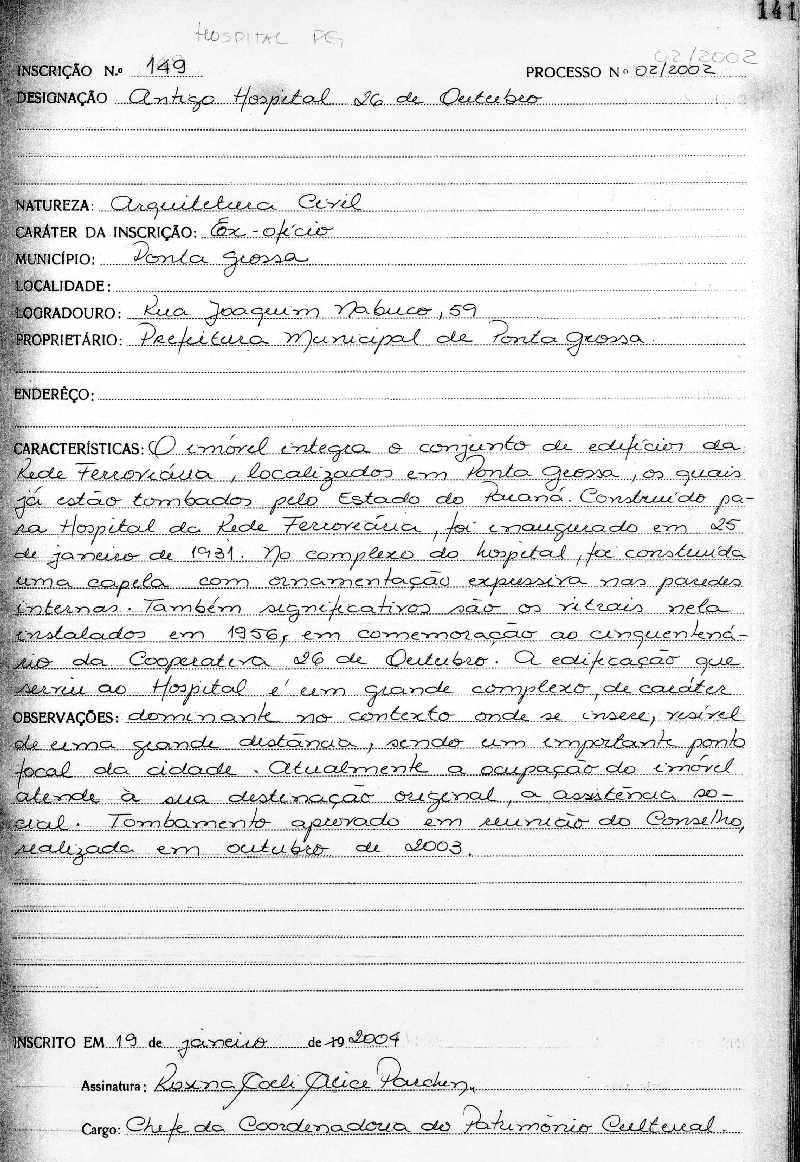 141
HOSPITAL PG
02/2002
INSCRIÇÃO N.º 149 PROCESSO Nº 02/2002
DESIGNAÇÃO Antigo Hospital 26 de Outubro
NATUREZA: Arquitetura Civil
CARÁTER DA INSCRIÇÃO: Ex-ofício
MUNICÍPIO: Ponta Grossa
LOCALIDADE:
LOGRADOURO: Rua Joaquim Nabuco, 59
PROPRIETÁRIO: Prefeitura Municipal de Ponta Grossa
ENDERÊÇO:
CARACTERÍSTICAS: O imóvel integra o conjunto de edifícios da
Rede Ferroviária, localizados em Ponta Grossa, os quais
já estão tombados pelo Estado do Paraná. Construído pa-
ra Hospital da Rede Ferroviária, foi inaugurado em 25
de janeiro de 1931. No complexo do hospital, foi construída
uma capela com ornamentação expressiva nas paredes
internas. Também significativos são os vitrais nela
instalados em 1956, em comemoração ao cinquentená-
rio da Cooperativa 26 de Outubro. A edificação que
serviu ao Hospital é um grande complexo, de caráter
OBSERVAÇÕES: dominante no contexto onde se insere, visível
de uma grande distância, sendo um importante ponto
focal da cidade. Atualmente a ocupação do imóvel
atende à sua destinação original, a assistência so-
cial. Tombamento aprovado em reunião do Conselho,
realizada em outubro de 2003.
INSCRITO EM 19 de janeiro de 19 2004
Assinatura: Rosina Coeli Alice Parchen
Cargo: Chefe da Coordenadoria do Patrimônio Cultural.